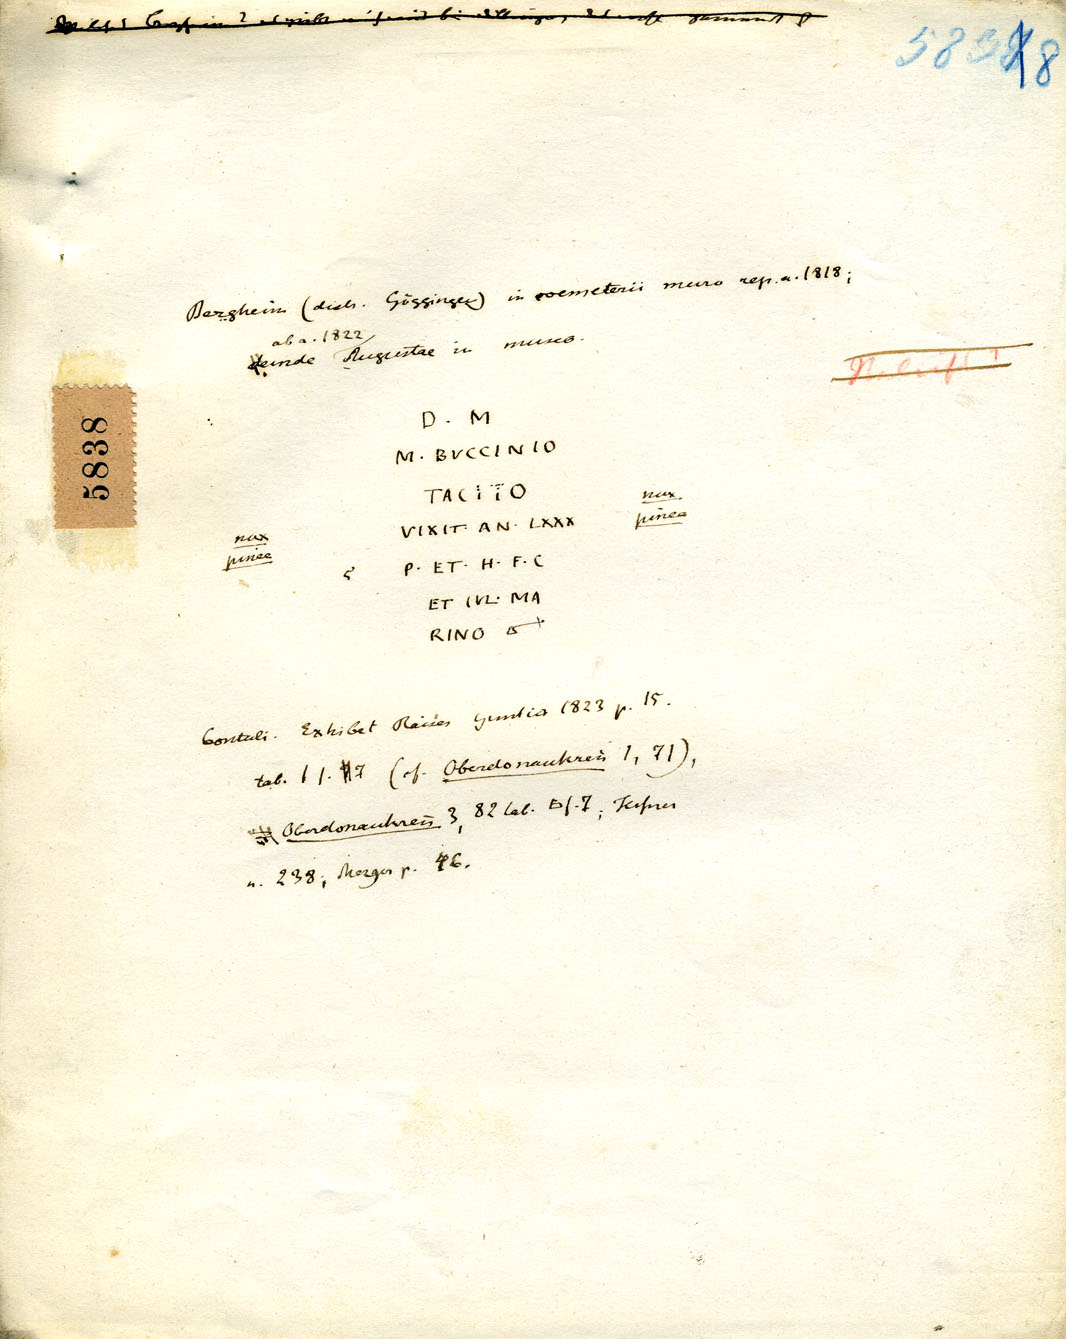 58388
Bergheim (dicb. Gögginger) in coemeterii muro rep. a. 1818;
ab a. 1822
deinde Augustae in museo.
5838
D. M
M. BVCCINIO
TACITO
nux
pinea
VIXIT. AN. LXXX
nux
pinea
5 P. ET. H. F. C
ET IVL. MA
RINO
Contuli. Exhibet Raiser 1823 p. 15.
tab. 1 f. 7 (cf. Oberdonaukreis 1, 71),
Oberdonaukreis 3, 82 tab. f. 7; Hefner
n. 238; Mezger p. 46.